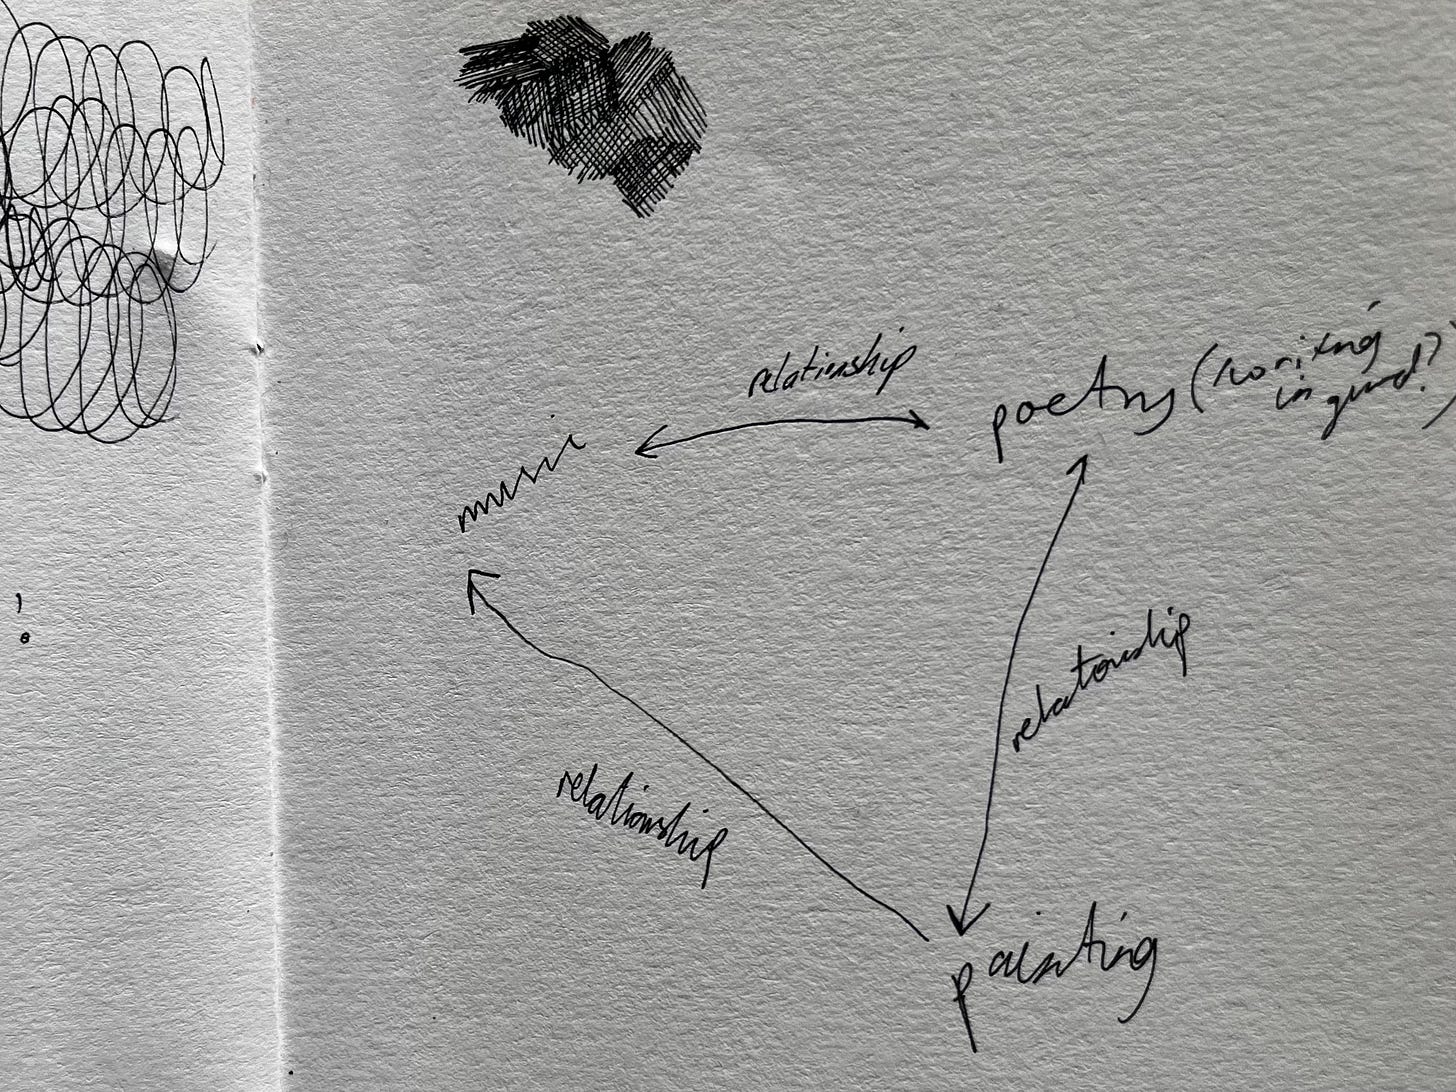 relationship
poetry (writing
in general?)
music
relationship
relationship
painting